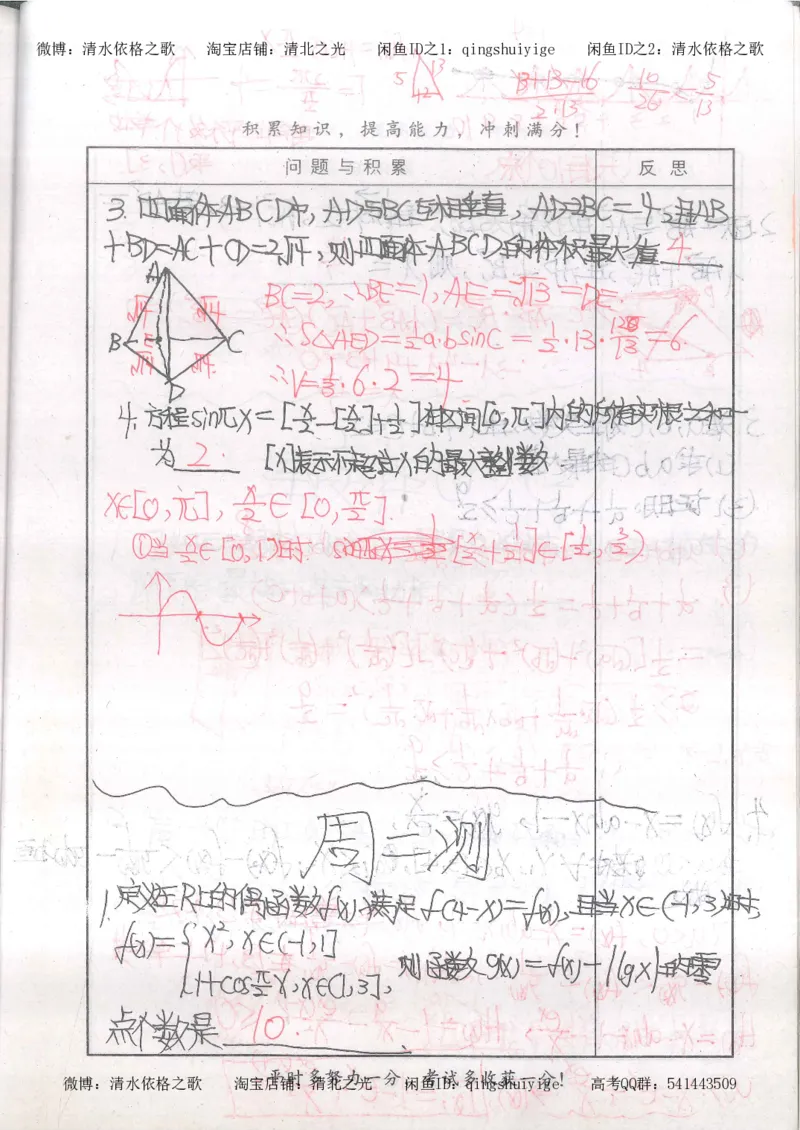 微博：清水依格之歌 淘宝店铺：清北之光 闲鱼ID之1：qingshuiyige 闲鱼ID之2：清水依格之歌
5 13 12
13+13-16 / 2·13 = 10/26 = 5/13
积累知识，提高能力，冲刺满分！
问题与积累 反思
3. 四面体ABCD中，AD与BC互相垂直，AD=2BC=4，且AB
+BD=AC+CD=2√14，则四面体ABCD的体积最大值 4
A
√14 √14
B E C
√14 √14
D
BC=2，∴BE=1，AE=√13=DE.
∴S△AED=½a·bsinC=½·13·12/13=6
∴V=⅓·6·2=4
4. 方程sinπx=[x/2-[x/2]+1/2]在区间[0,π]内的所有实根之和
为 2. [x]表示不超过x的最大整数
x∈[0,π]，x/2∈[0,π/2].
①当x/2∈[0,1)时 [x/2+1/2]∈[1/2,3/2)
周二测
1. 定义在R上的偶函数f(x)满足f(4-x)=f(x)，且当x∈(-1,3]时，
f(x)={x²，x∈(-1,1]
1+cosπ/2x，x∈(1,3]， 则函数g(x)=f(x)-|lgx|的零
点个数是 10.
平时多努力一分，考试多收获一分！
微博：清水依格之歌 淘宝店铺：清北之光 闲鱼ID：qingshuiyige 高考QQ群：541443509